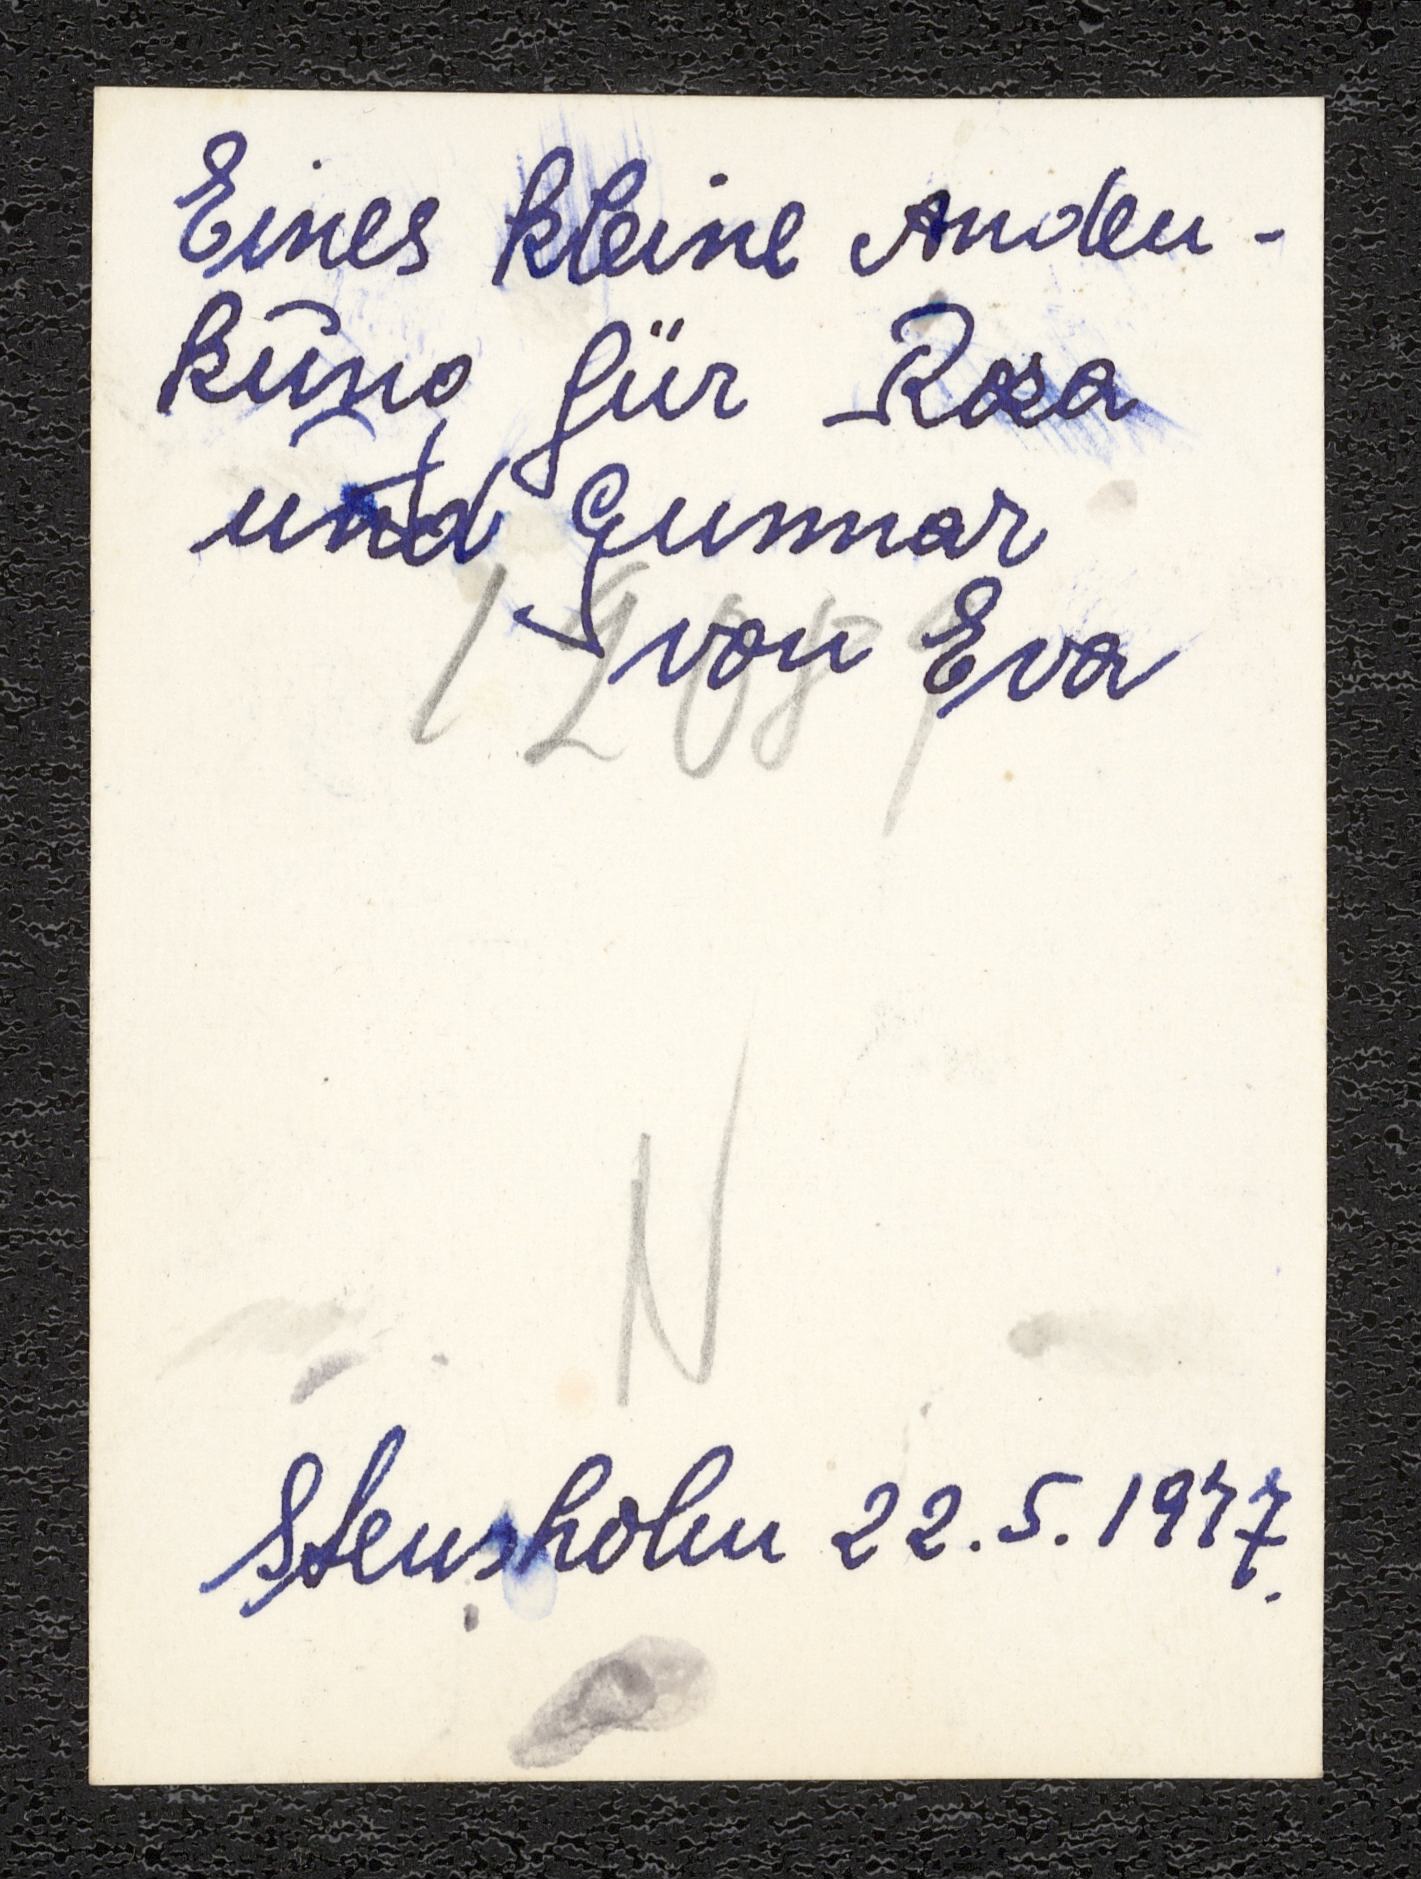 Eines kleine Anden-
kung für Rosa
und Gunnar
von Eva
N
Stensholm 22.5.1977.